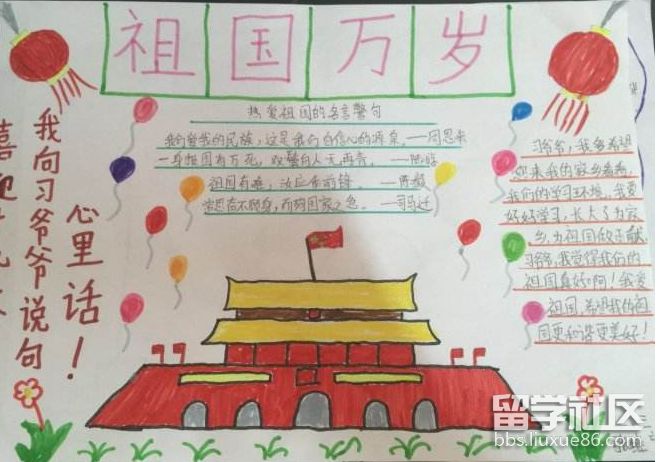 祖国万岁
热爱祖国的名言警句
我们爱我的民族，这是我们自信心的源泉。——周恩来
一身报国有万死，双鬓向人无再青。——陆游
祖国有难，汝应作前锋。——陈毅
常思奋不顾身，而殉国家之急。——司马迁
喜迎十九大
我向习爷爷说句
心里话！
习爷爷，我多希望
您来我的家乡看看，
我们的学习环境，我要
好好学习，长大了为家
乡，为祖国做贡献。
习爷爷，我觉得我们的
祖国真好啊！我爱
祖国，希望我们的祖
国更和谐更美好！
留学社区
bbs.liuxue86.com